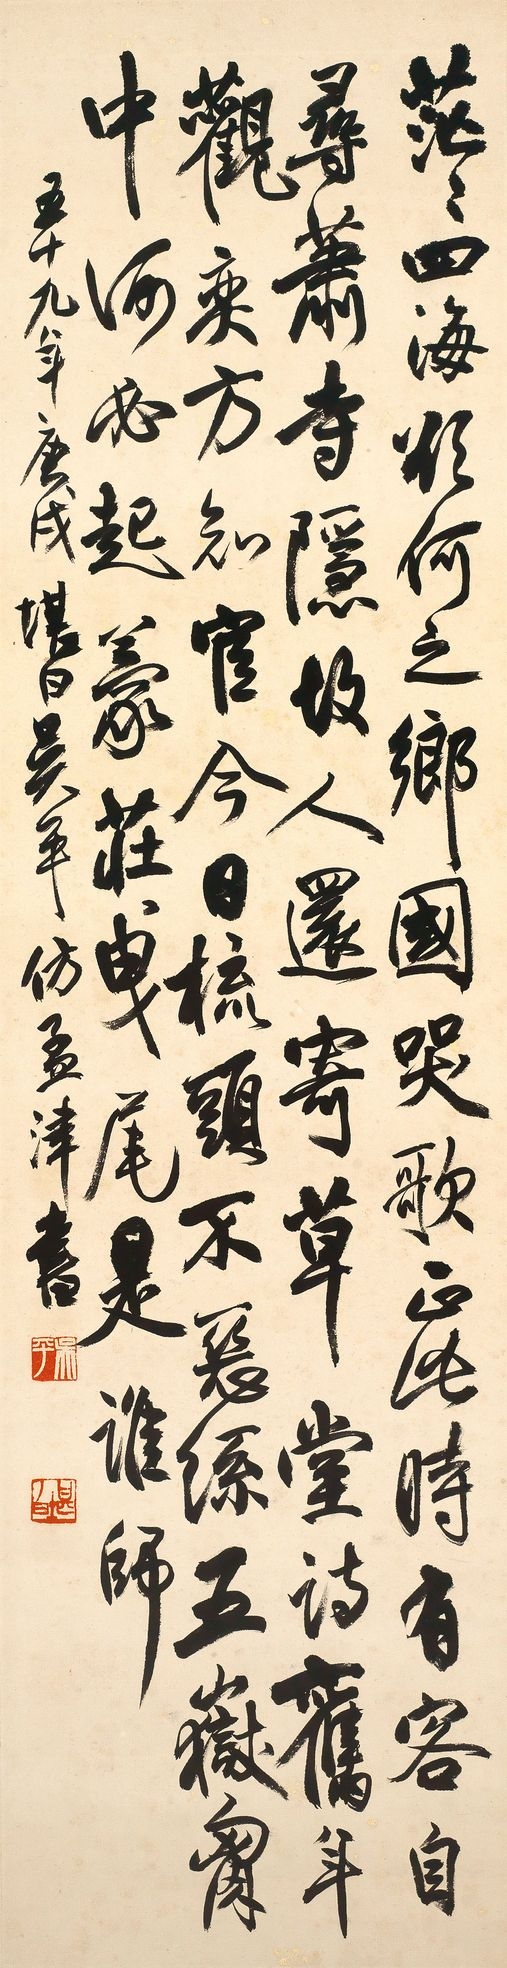 茫々四海欲何之鄉國哭歌正此時有客自
尋蕭寺隱故人還寄草堂詩舊年
觀奕方知官今日梳頭不忍絲五嶽胸
中何必起蒙莊曳尾是誰師
五十九年庚戌堪白吳平仿孟津書
吳平
堪白